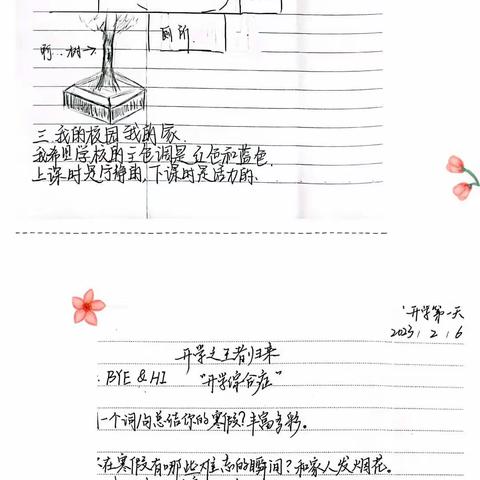 厕所
树→
三.我的校园我的家.
我希望学校的主色调是白色和蓝色,
上课时是宁静的,下课时是活力的.
开学第一天
2023.2.6
开学之王者归来
BYE & HI “开学综合症”
一个词/句总结你的寒假?丰富多彩。
在寒假有哪些难忘的瞬间?和家人发烟花。